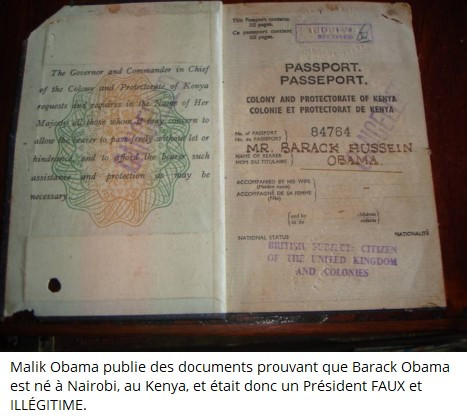 The Governor and Commander in Chief
of the Colony and Protectorate of Kenya
requests and requires in the Name of Her
Majesty all those whom it may concern to
allow the bearer to pass freely without let or
hindrance and to afford the bearer such
assistance and protection as may be
necessary.
This Passport contains
pages.
Ce passeport contient
pages.
PASSPORT.
PASSEPORT.
COLONY AND PROTECTORATE OF KENYA
COLONIE ET PROTECTORAT DE KENYA
No. of PASSPORT
No. du PASSEPORT
84764
MR. BARACK HUSSEIN
NAME OF BEARER
NOM DU TITULAIRE
OBAMA.
ACCOMPANIED BY HIS WIFE
(Maiden name)
ACCOMPAGNÉ DE SA FEMME
(Née)
and by
children
NATIONAL STATUS
NATIONALITÉ
BRITISH SUBJECT: CITIZEN
OF THE UNITED KINGDOM
AND COLONIES
Malik Obama publie des documents prouvant que Barack Obama
est né à Nairobi, au Kenya, et était donc un Président FAUX et
ILLÉGITIME.